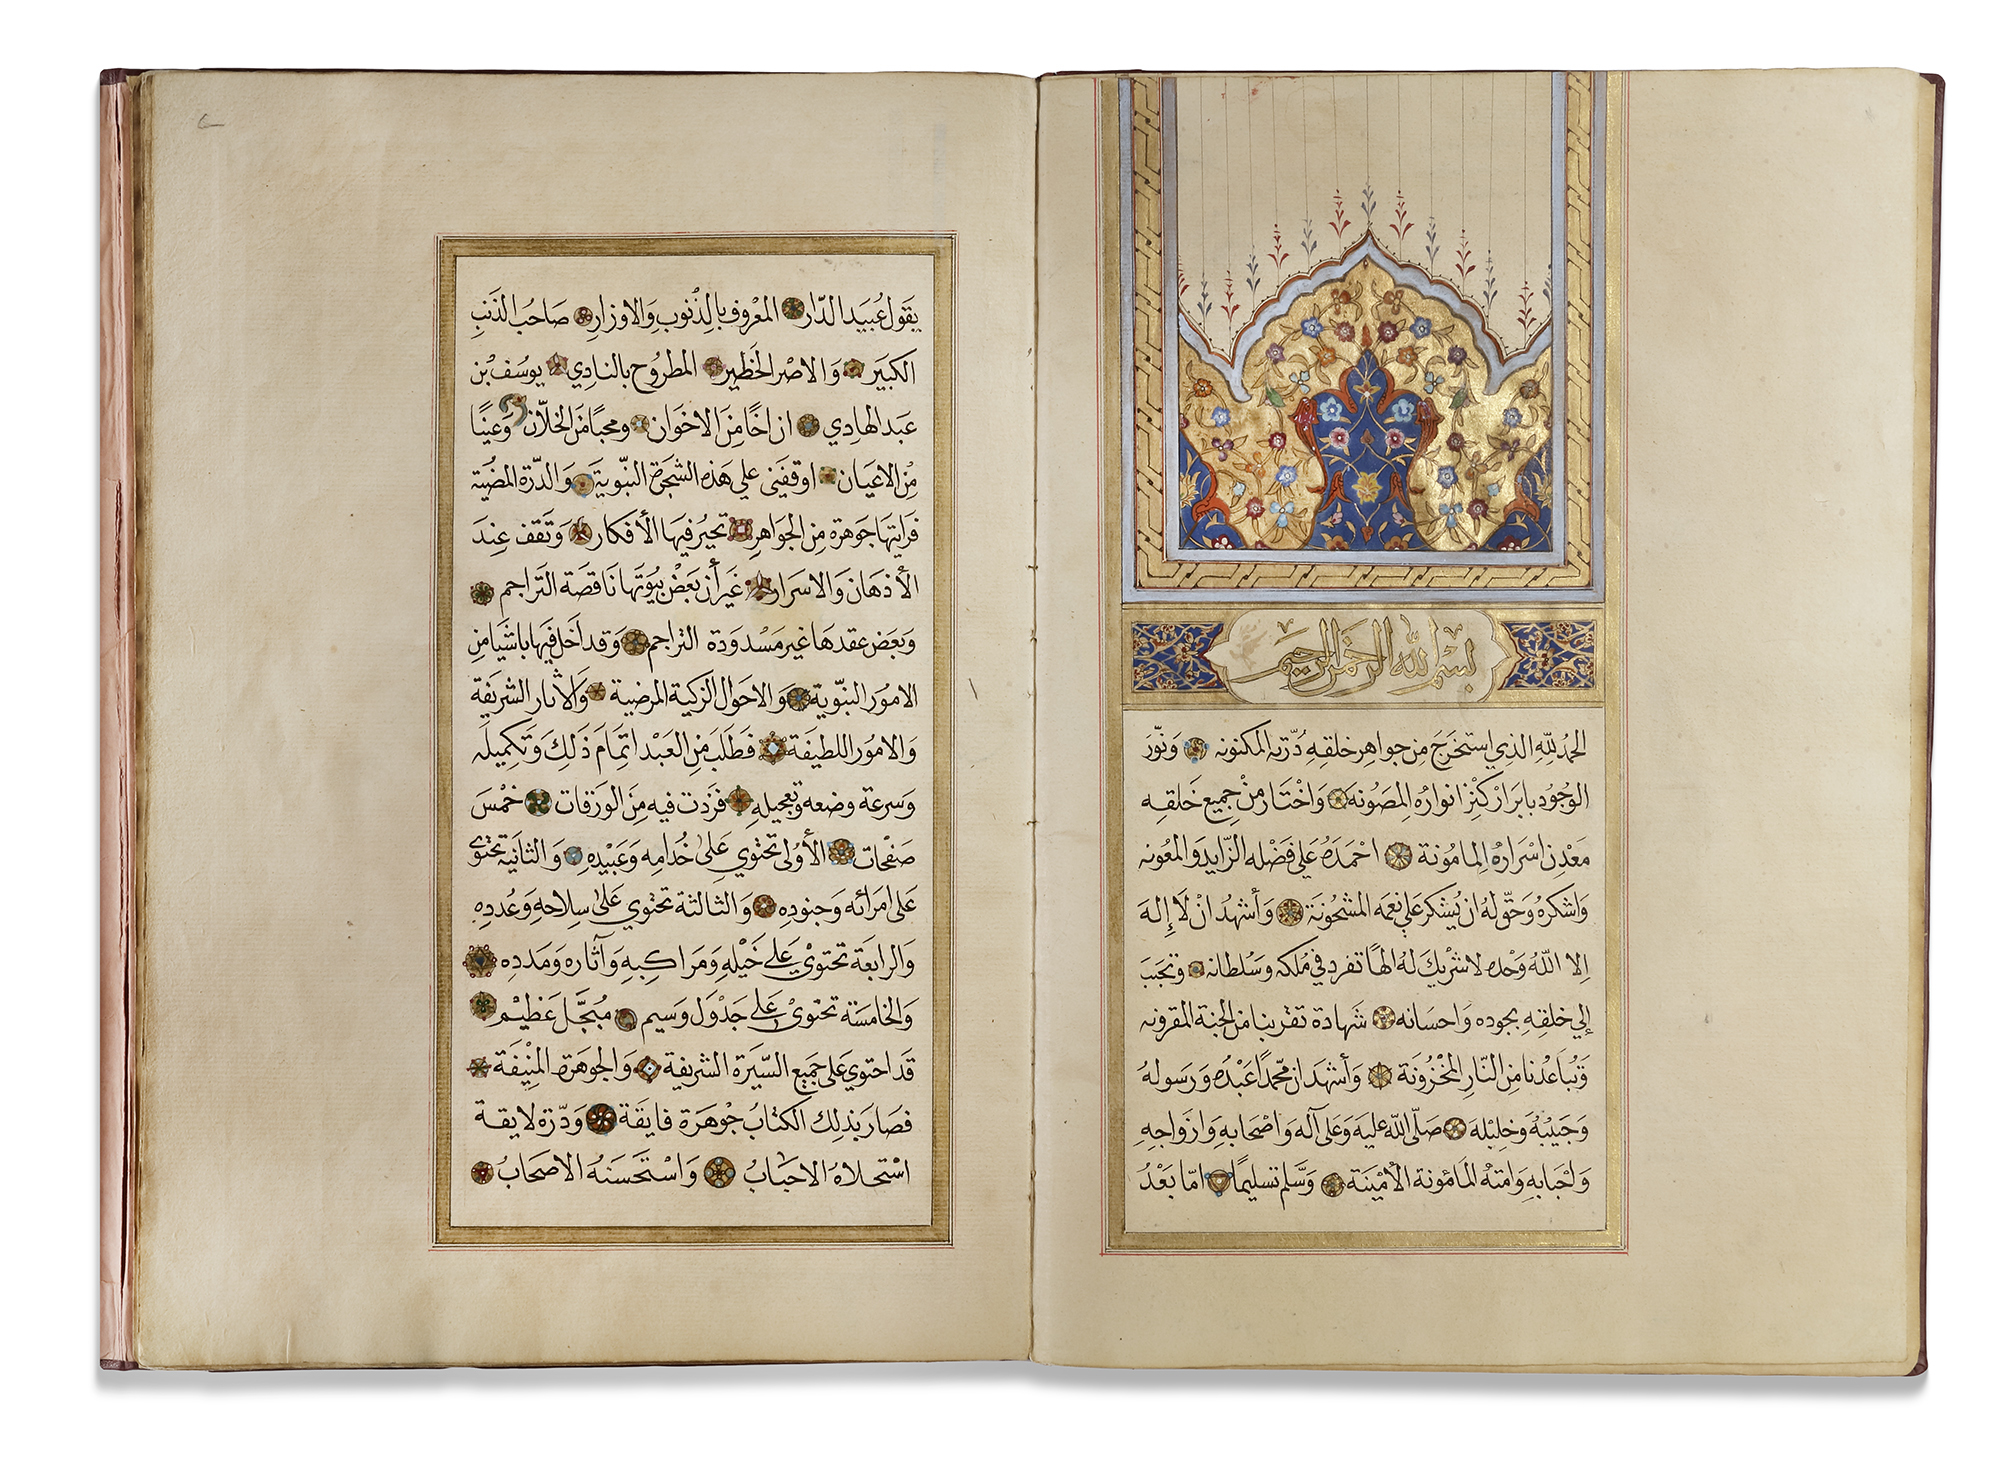 بسم الله الرحمن الرحيم
الحمد لله الذي استخرج من جواهر خلقه درته المكنونه ونور
الوجود بابراز كنز انواره المصونه واختار من جميع خلقه
معدن اسراره المامونة احمده علي فضله الزايد والمعونه
واشكره وحق له ان يشكر علي نعمه المشحونة وأشهد ان لا إله
إلا الله وحده لا شريك له الها تفرد في ملكه وسلطانه وتحبب
إلي خلقه بجوده واحسانه شهادة تقربنا من الجنة المقرونه
وتباعدنا من النار المخزونة وأشهد ان محمدا عبده ورسوله
وحبيبه وخليله صلى الله عليه وعلى آله واصحابه وازواجه
واحبابه وامته المامونة الأمينة وسلم تسليما اما بعد
يقول عبيد الدار المعروف بالذنوب والاوزار صاحب الذنب
الكبير والاصر الخطير المطروح بالنادي يوسف بن
عبد الهادي ان اخا من الاخوان ومحبا من الخلان وعينا
من الاعيان اوقفني علي هذه الشجرة النبوية والدرة المضية
فرايتها جوهرة من الجواهر تحير فيها الأفكار وتقف عند
الأذهان والاسرار غير أن بعض بيوتها ناقصة التراجم
وبعض عقدها غير مسدودة التراجم وقد أخل فيها باشيا من
الامور النبوية والاحوال الزكية المرضية والأثار الشريفة
والامور اللطيفة فطلب من العبد اتمام ذلك وتكميله
وسرعة وضعه وتعجيله فزدت فيه من الورقات خمس
صفحات الأولى تحتوي على خدامه وعبيده والثانية تحتوى
على امرائه وجنوده والثالثة تحتوي على سلاحه وعدده
والرابعة تحتوي على خيله ومراكبه وآثاره ومدده
والخامسة تحتوي على جدول وسيم مبجل عظيم
قد احتوي على جميع السيرة الشريفة والجوهرة المنيفة
فصار بذلك الكتاب جوهرة فايقة ودرة لايقة
استحلاه الاحباب واستحسنه الاصحاب